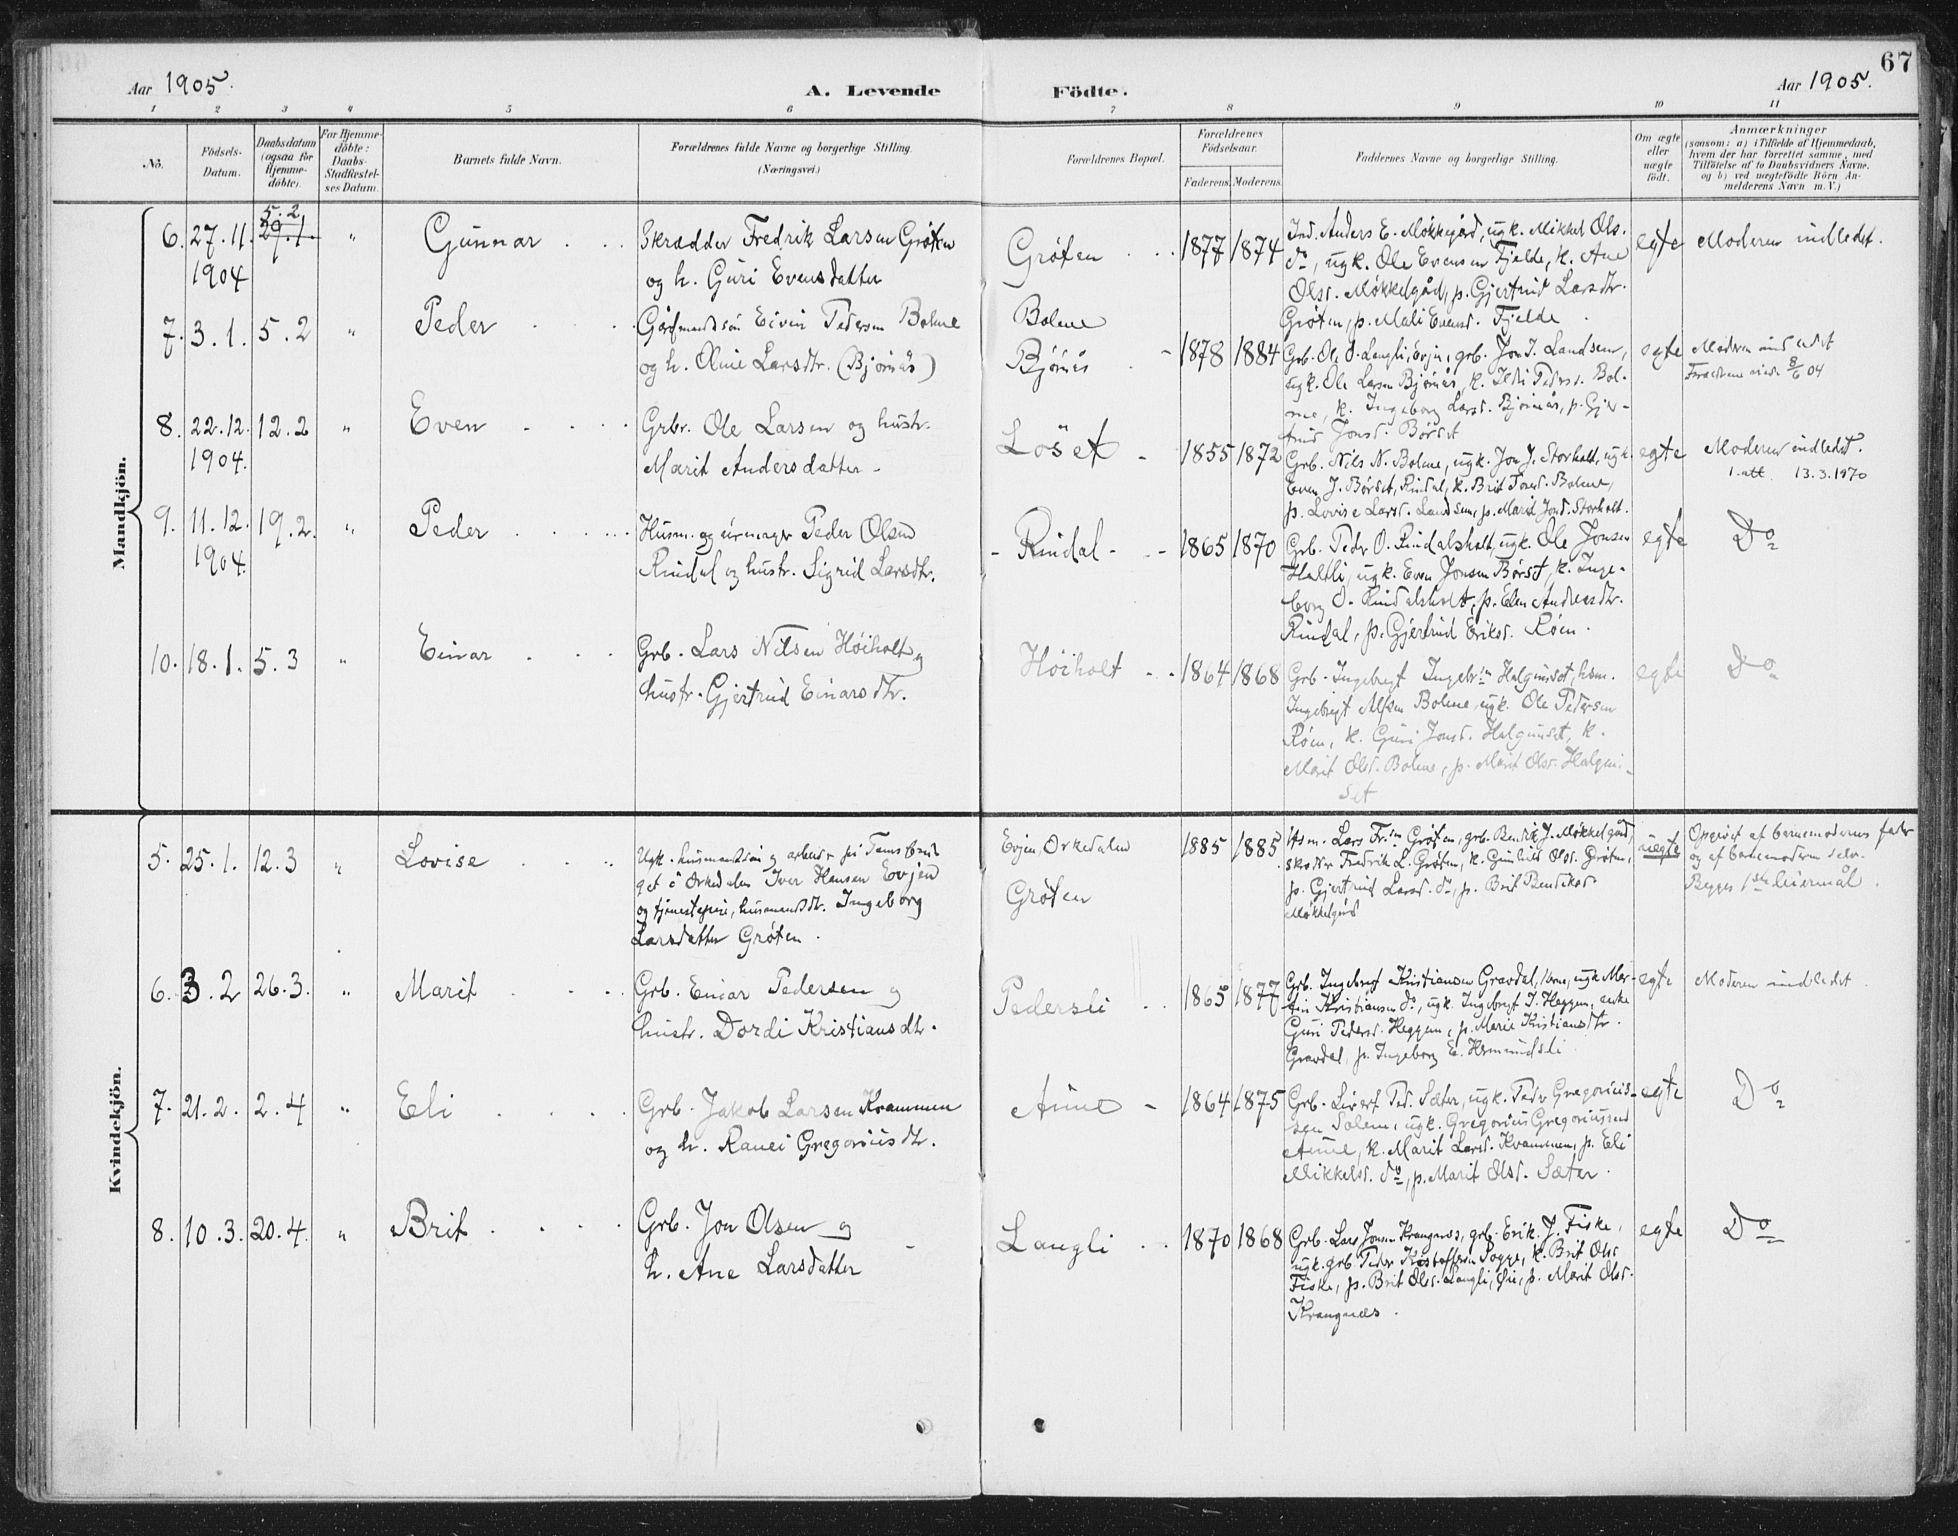 67
Aar 1905.
A. Levende Födte.
Aar 1905.
1 2 3 4 5 6 7 8 9 10 11
No.
Födsels-
Datum.
Daabsdatum
(ogsaa for
Hjemme-
döbte).
For Hjemme-
döbte:
Daabs-
Stadfæstel-
ses Datum.
Barnets fulde Navn.
Forældrenes fulde Navne og borgerlige Stilling.
(Næringsvei.)
Forældrenes Bopæl.
Forældrenes
Födselsaar.
Faderens. Moderens.
Faddernes Navne og borgerlige Stilling.
Om ægte
eller
uægte
født.
Anmærkninger
(saasom: a) i Tilfælde af Hjemmedaab,
hvem der har forrettet samme, med
Tilföielse af to Daabsvidners Navne.
og b) ved uægtefödte Börn An-
melderens Navn m. V.)
Mandkjön.
6. 27.11. 1904 5.2 29.1. " Gunnar
Skrædder Fredrik Larsen Grøten
og h. Guri Evensdatter
Grøten 1877 1874
Ind. Anders E. Møkkegård, ugk. Mikkel Ols.
do, ugk. Ole Evensen Fjelde, k. Ane
Olsd. Møkkelgård, p. Gjertrud Larsdtr.
Grøten, p. Mali Evensd. Fjelde.
egte Moderen indledet.
7. 3.1. 5.2 " Peder
Gårdmandssøn Eivin Pedersen Bolme
og h. Oline Larsdtr. (Bjørnås)
Bolme
Bjørnås 1878 1884
Grb. Ole O. Langli, Evjen, grb. Jon J. Landsem,
ugk. Ole Larsen Bjørnås, k. Ildri Pedersd. Bol-
me, k. Ingeborg Larsd. Bjørnås, p. Gjer-
trud Jonsd. Børset
egte Moderen indledet
Forældrene viede 8/6 04
8. 22.12. 1904. 12.2 " Even
Grbr. Ole Larsen og hustr.
Marit Andersdatter
Löset 1855 1872
Grb. Nils N. Bolme, ugk. Jon J. Storholt, ugk.
Even J. Børset, Rindal, k. Brit Tored. Bolme,
p. Lovise Larsd. Landsem, p. Marit Jonsd. Storholt.
egte Moderen indledet.
1 att. 13.3.1970
9. 11.12. 1904. 19.2. " Peder
Husm. og urmager Peder Olsen
Rindal og hustr. Sigrid Larsdtr.
Rindal 1865 1870
Grb. Peder O. Rindalsholt, ugk. Ole Jonsen
Haltli, ugk. Even Jonsen Børset, k. Inge-
borg O. Rindalsholt, p. Elen Andersdtr.
Rindal, p. Gjertrud Eriksd. Røen.
egte Do
10. 18.1. 5.3 " Einar
Grb. Lars Nilsen Höiholt og
hustr. Gjertrud Einarsdtr.
Höiholt 1864 1868
Grb. Ingebrigt Ingebr.sn Halgunset, hsm.
Ingebrigt Alfsen Bolme, ugk. Ole Pedersen
Röen, k. Guri Jonsd. Halgunset, k.
Marit Olsd. Bolme, p. Marit Olsd. Halgun-
set
egte Do
Kvindekjön.
5. 25.1. 12.3 " Lovise
Ugk. husmandssøn og arbeider
i Orkedalen Iver Hansen Evjen
og tjenestepige, husmandsdtr. Ingeborg
Larsdatter Grøten.
Evjen, Orkedalen
Grøten
1885 1885
Hsm. Lars Fr.sn Grøten, grb. Bendik J. Møkkelgård,
skrædder Fredrik L. Grøten, k. Gunhild Olsd. Grøten,
p. Gjertrud Larsd. do, p. Brit Bendiksd.
Møkkelgård
uægte
Opgivet af barnemoderens fader
og af barnemoderen selv.
Begges 1ste leiermål.
6. 3.2 26.3. " Marit
Grb. Einar Pedersen og
hustr. Dordi Kristiansdtr.
Pedersli 1865 1877
Grb. Ingebrigt Kristiansen Gravdal, ugk. Mar-
tin Kristiansen do, ugk. Ingebrigt J. Heggem, enke
Guri Pedersd. Heggem, p. Marie Kristiansdtr.
Gravdal, p. Ingeborg E. Hermundsli
egte Moderen indledet.
7. 21.2. 2.4 " Eli
Grb. Jakob Larsen Kvammen
og h. Ranei Gregoriusdtr.
Aune 1864 1875
Grb. Sivert Ped. Sæter, ugk. Peder Gregorius-
sen Solem, ugk. Gregorius Gregoriussen
Aune, k. Marit Larsd. Kvammen, p. Eli
Mikkelsd. do, p. Marit Olsd. Sæter.
egte Do
8. 10.3. 20.4. " Brit
Grb. Jon Olsen og
h. Ane Larsdatter
Langli 1870 1868
Grb. Lars Jonsen Krangnes, grb. Erik J. Fiske,
ugk. grb. Peder Kristoffersen Sogge, k. Brit Olsd.
Fiske, p. Brit Olsd. Langli, p. Marit Olsd.
Krangnæs.
egte Do